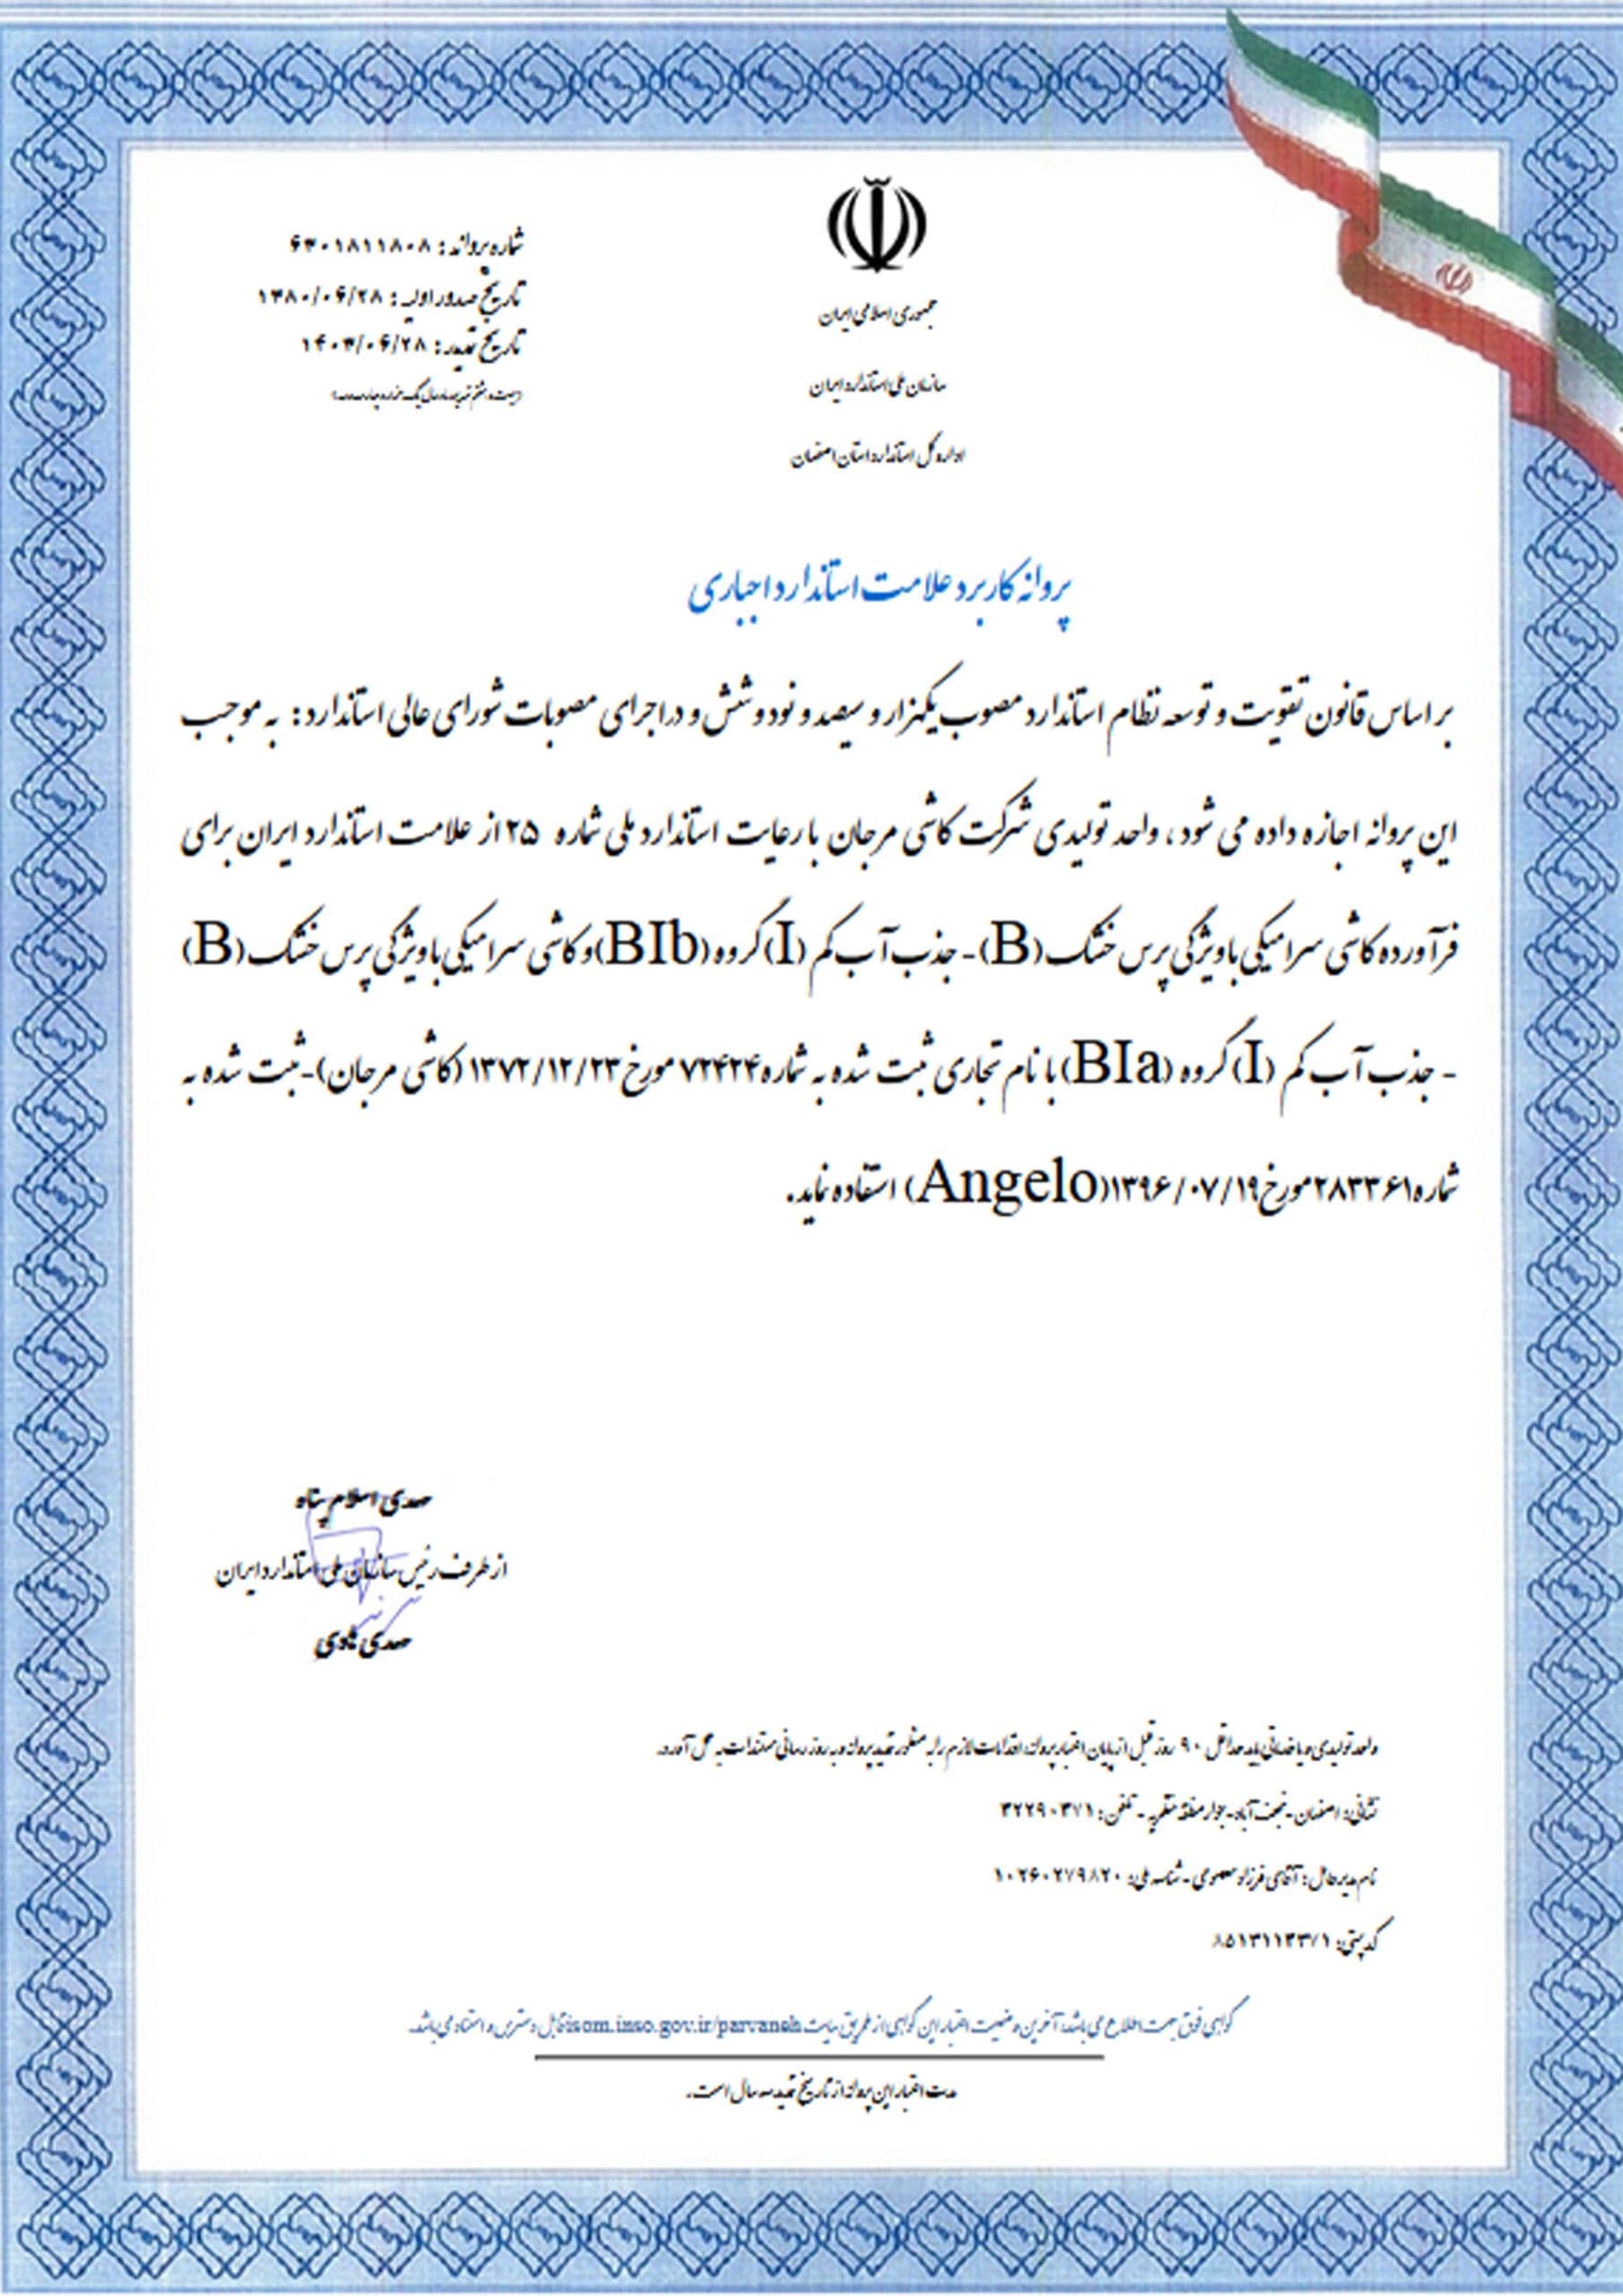 جمهوری اسلامی ایران
سازمان ملی استاندارد ایران
اداره کل استاندارد استان اصفهان
شماره پروانه : ۶۳۰۱۸۱۱۸۰۸
تاریخ صدور اولیه : ۱۳۸۰/۰۶/۲۸
تاریخ تمدید : ۱۴۰۳/۰۶/۲۸
پروانه کاربرد علامت استاندارد اجباری
بر اساس قانون تقویت و توسعه نظام استاندارد مصوب یکهزار و سیصد و نود و شش و در اجرای مصوبات شورای عالی استاندارد : به موجب
این پروانه اجازه داده می شود ، واحد تولیدی شرکت کاشی مرجان با رعایت استاندارد ملی شماره ۲۵ از علامت استاندارد ایران برای
فرآورده کاشی سرامیکی با ویژگی پرس خشک (B) - جذب آب کم (I) گروه (BIb) و کاشی سرامیکی با ویژگی پرس خشک (B)
- جذب آب کم (I) گروه (BIa) با نام تجاری ثبت شده به شماره ۷۲۴۲۴ مورخ ۱۳۷۲/۱۲/۲۳ (کاشی مرجان)-ثبت شده به
شماره ۲۸۳۳۶۱ مورخ ۱۳۹۶/۰۷/۱۹ (Angelo) استفاده نماید.
مهدی اسلام پناه
از طرف رئیس سازمان ملی استاندارد ایران
مهدی هادی
واحد تولیدی و یا خدماتی باید حداقل ۹۰ روز قبل از پایان اعتبار پروانه، اقدامات لازم را به منظور تمدید پروانه و به روز رسانی مستندات به عمل آورد.
نشانی: اصفهان - نجف آباد - جوار منطقه منتظریه - تلفن: ۳۲۲۹۰۳۷۱
نام مدیرعامل : آقای فرزاد معصومی - شناسه ملی: ۱۰۲۶۰۲۷۹۸۲۰
کد پستی:
گواهی فوق جهت اطلاع می باشد، آخرین وضعیت اعتبار این گواهی از طریق سایت isom.inso.gov.ir/parvaneh قابل دسترس و استناد می باشد.
مدت اعتبار این پروانه از تاریخ تمدید سه سال است.